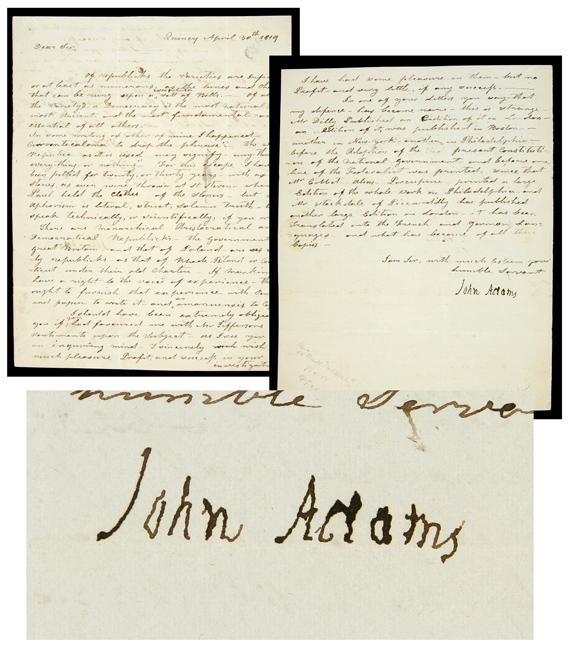 Quincy April 30th 1819
Dear Sir.
of republicks the varieties are
or at least as numerous as the tunes and
that can be rung upon a set of Bells. — of
the variety, a Democracy is the most natural
most Ancient and the most fundamental and
essential of all others.
In some writing or other of mine I happened,
currente calamo to drop the phrase: the
Republic as it is used may signify any
everything or nothing" For this escape I have
been pelted for twenty or thirty years with as
stones, as ever were thrown at St Steven when
Paul held the Clothes of the stoners, but
aphorism is literal, strict, solemn truth. to
speak technically, or scientifically, if you
There are Monarchical Aristocratical and
Democratical Republicks. the Government
great Britain and that of Poland are as
ly republicks as that of Rhode Island or
under their old Charters. If mankind
have a right to the voice of experience
ought to furnish that experience with
and paper to write it. and, amanuensis to
I should have been extremely
you if had favoured me with Mr Jeffersons
sentiments upon the subject — as I see you
an inquiring mind. I sincerely wish
much pleasure Profit, and success in your
investigati
I have had some pleasure in them — but no
Profit and very little, if any success.
In one of your letters you say that
my defence has become rare: this is strange
Mr Dilly Published an Edition of it in
an Edition of it, was published in Boston —
another in New-york another in Philadelphia
before the Adoption of the present Constituti-
on of the National Government and before one
line of the Federalist was printed. since that
Mr Cobbet alias Porcupine printed a large
Edition of the whole work in Philadelphia and
Mr Stockdale of Piccadilly has published
another large Edition in London — it has been
translated into the French and german lan-
guages. and what has become of all these
Copies —
I am Sir, with much esteem your
humble Servant
John Adams
humble Serva
John Adams